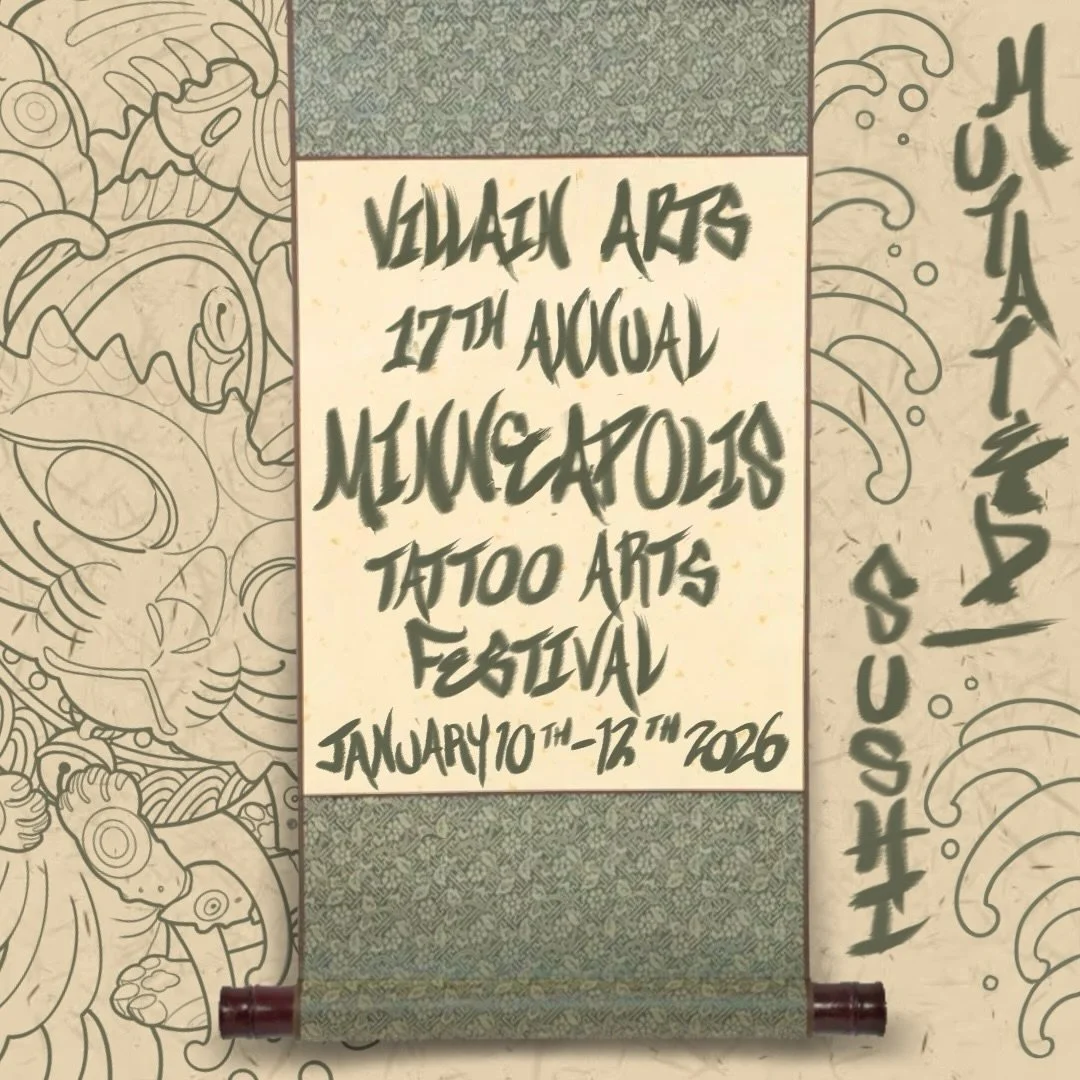 VILLAIN ARTS
17TH ANNUAL
MINNEAPOLIS
TATTOO ARTS
FESTIVAL
JANUARY 10TH-12TH 2026
MUTATED
SUSHI